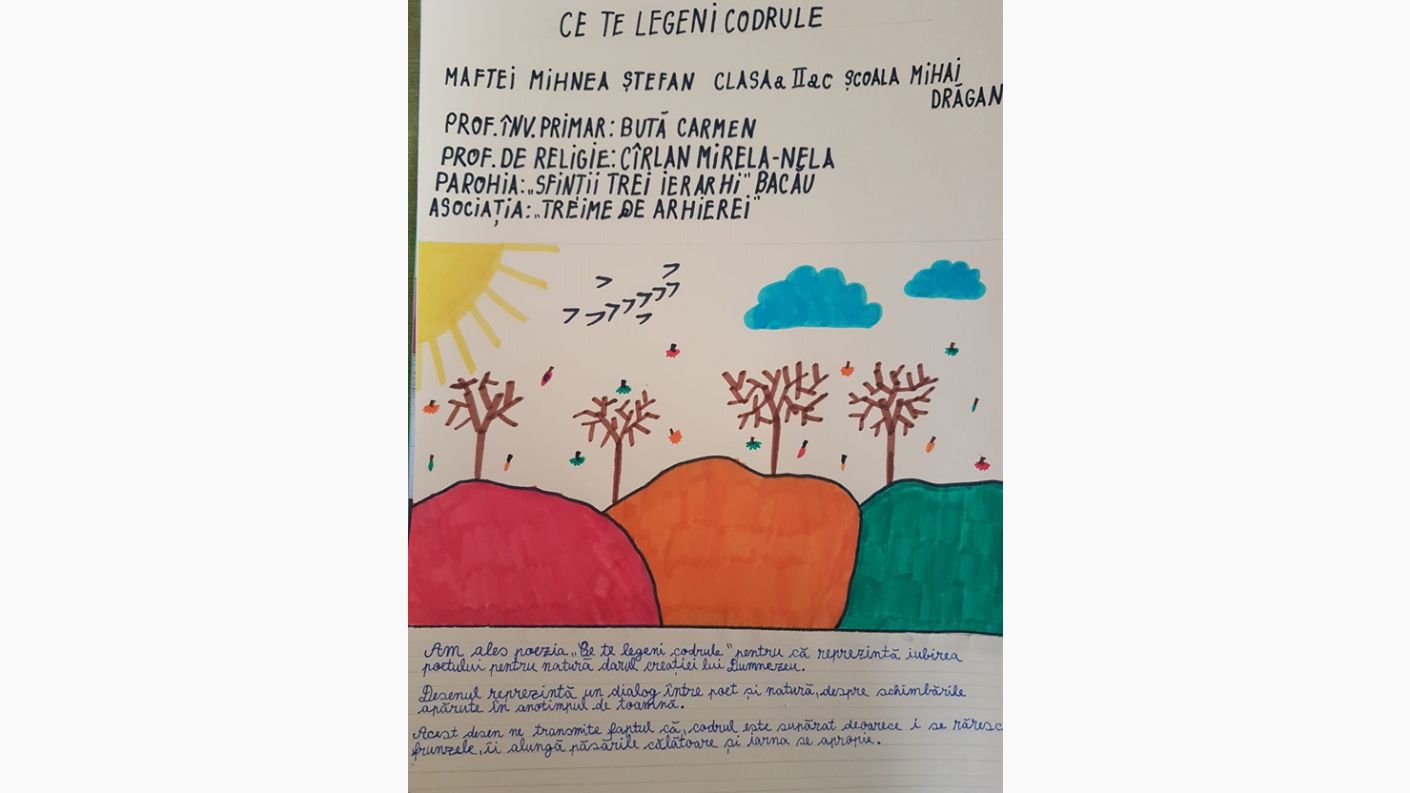 CE TE LEGENI CODRULE
MAFTEI MIHNEA ȘTEFAN CLASA a II a C ȘCOALA MIHAI
DRĂGAN
PROF. ÎNV. PRIMAR: BUTĂ CARMEN
PROF. DE RELIGIE: CÎRLAN MIRELA-NELA
PAROHIA: „SFINȚII TREI IERARHI" BACĂU
ASOCIAȚIA: „TREIME DE ARHIEREI"
Am ales poezia „Ce te legeni codrule" pentru că reprezintă iubirea
poetului pentru natură darul creației lui Dumnezeu.
Desenul reprezintă un dialog între poet și natură, despre schimbările
apărute în anotimpul de toamnă.
Acest desen ne transmite faptul că, codrul este supărat deoarece i se răresc
frunzele, îi alungă păsările călătoare și iarna se apropie.